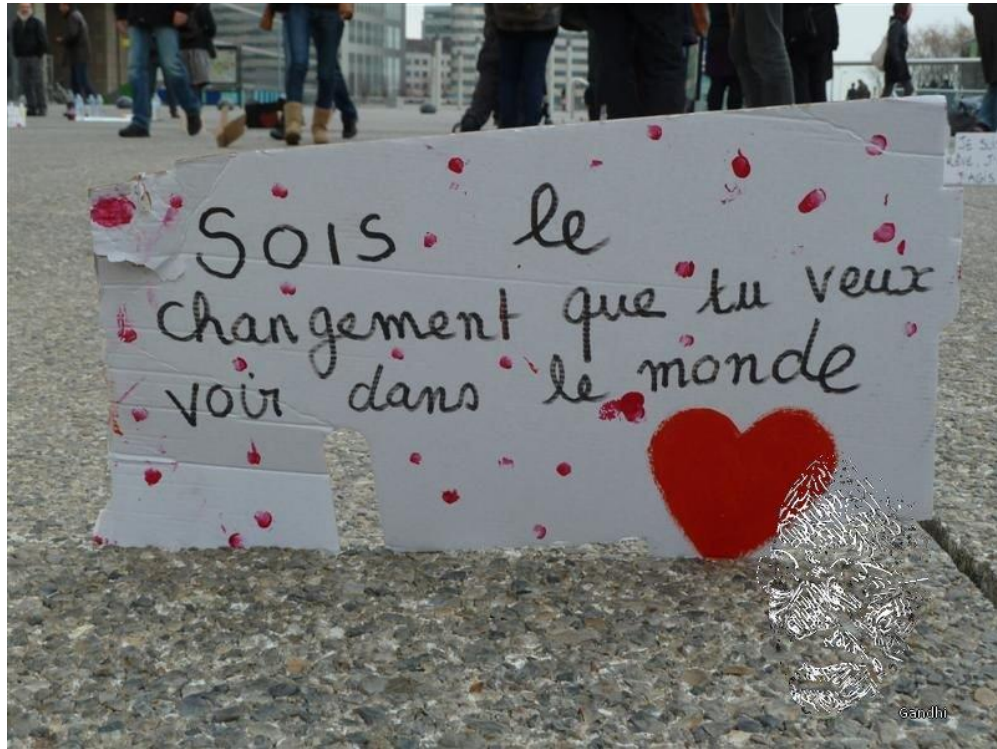 Sois le
changement que tu veux
voir dans le monde
Gandhi